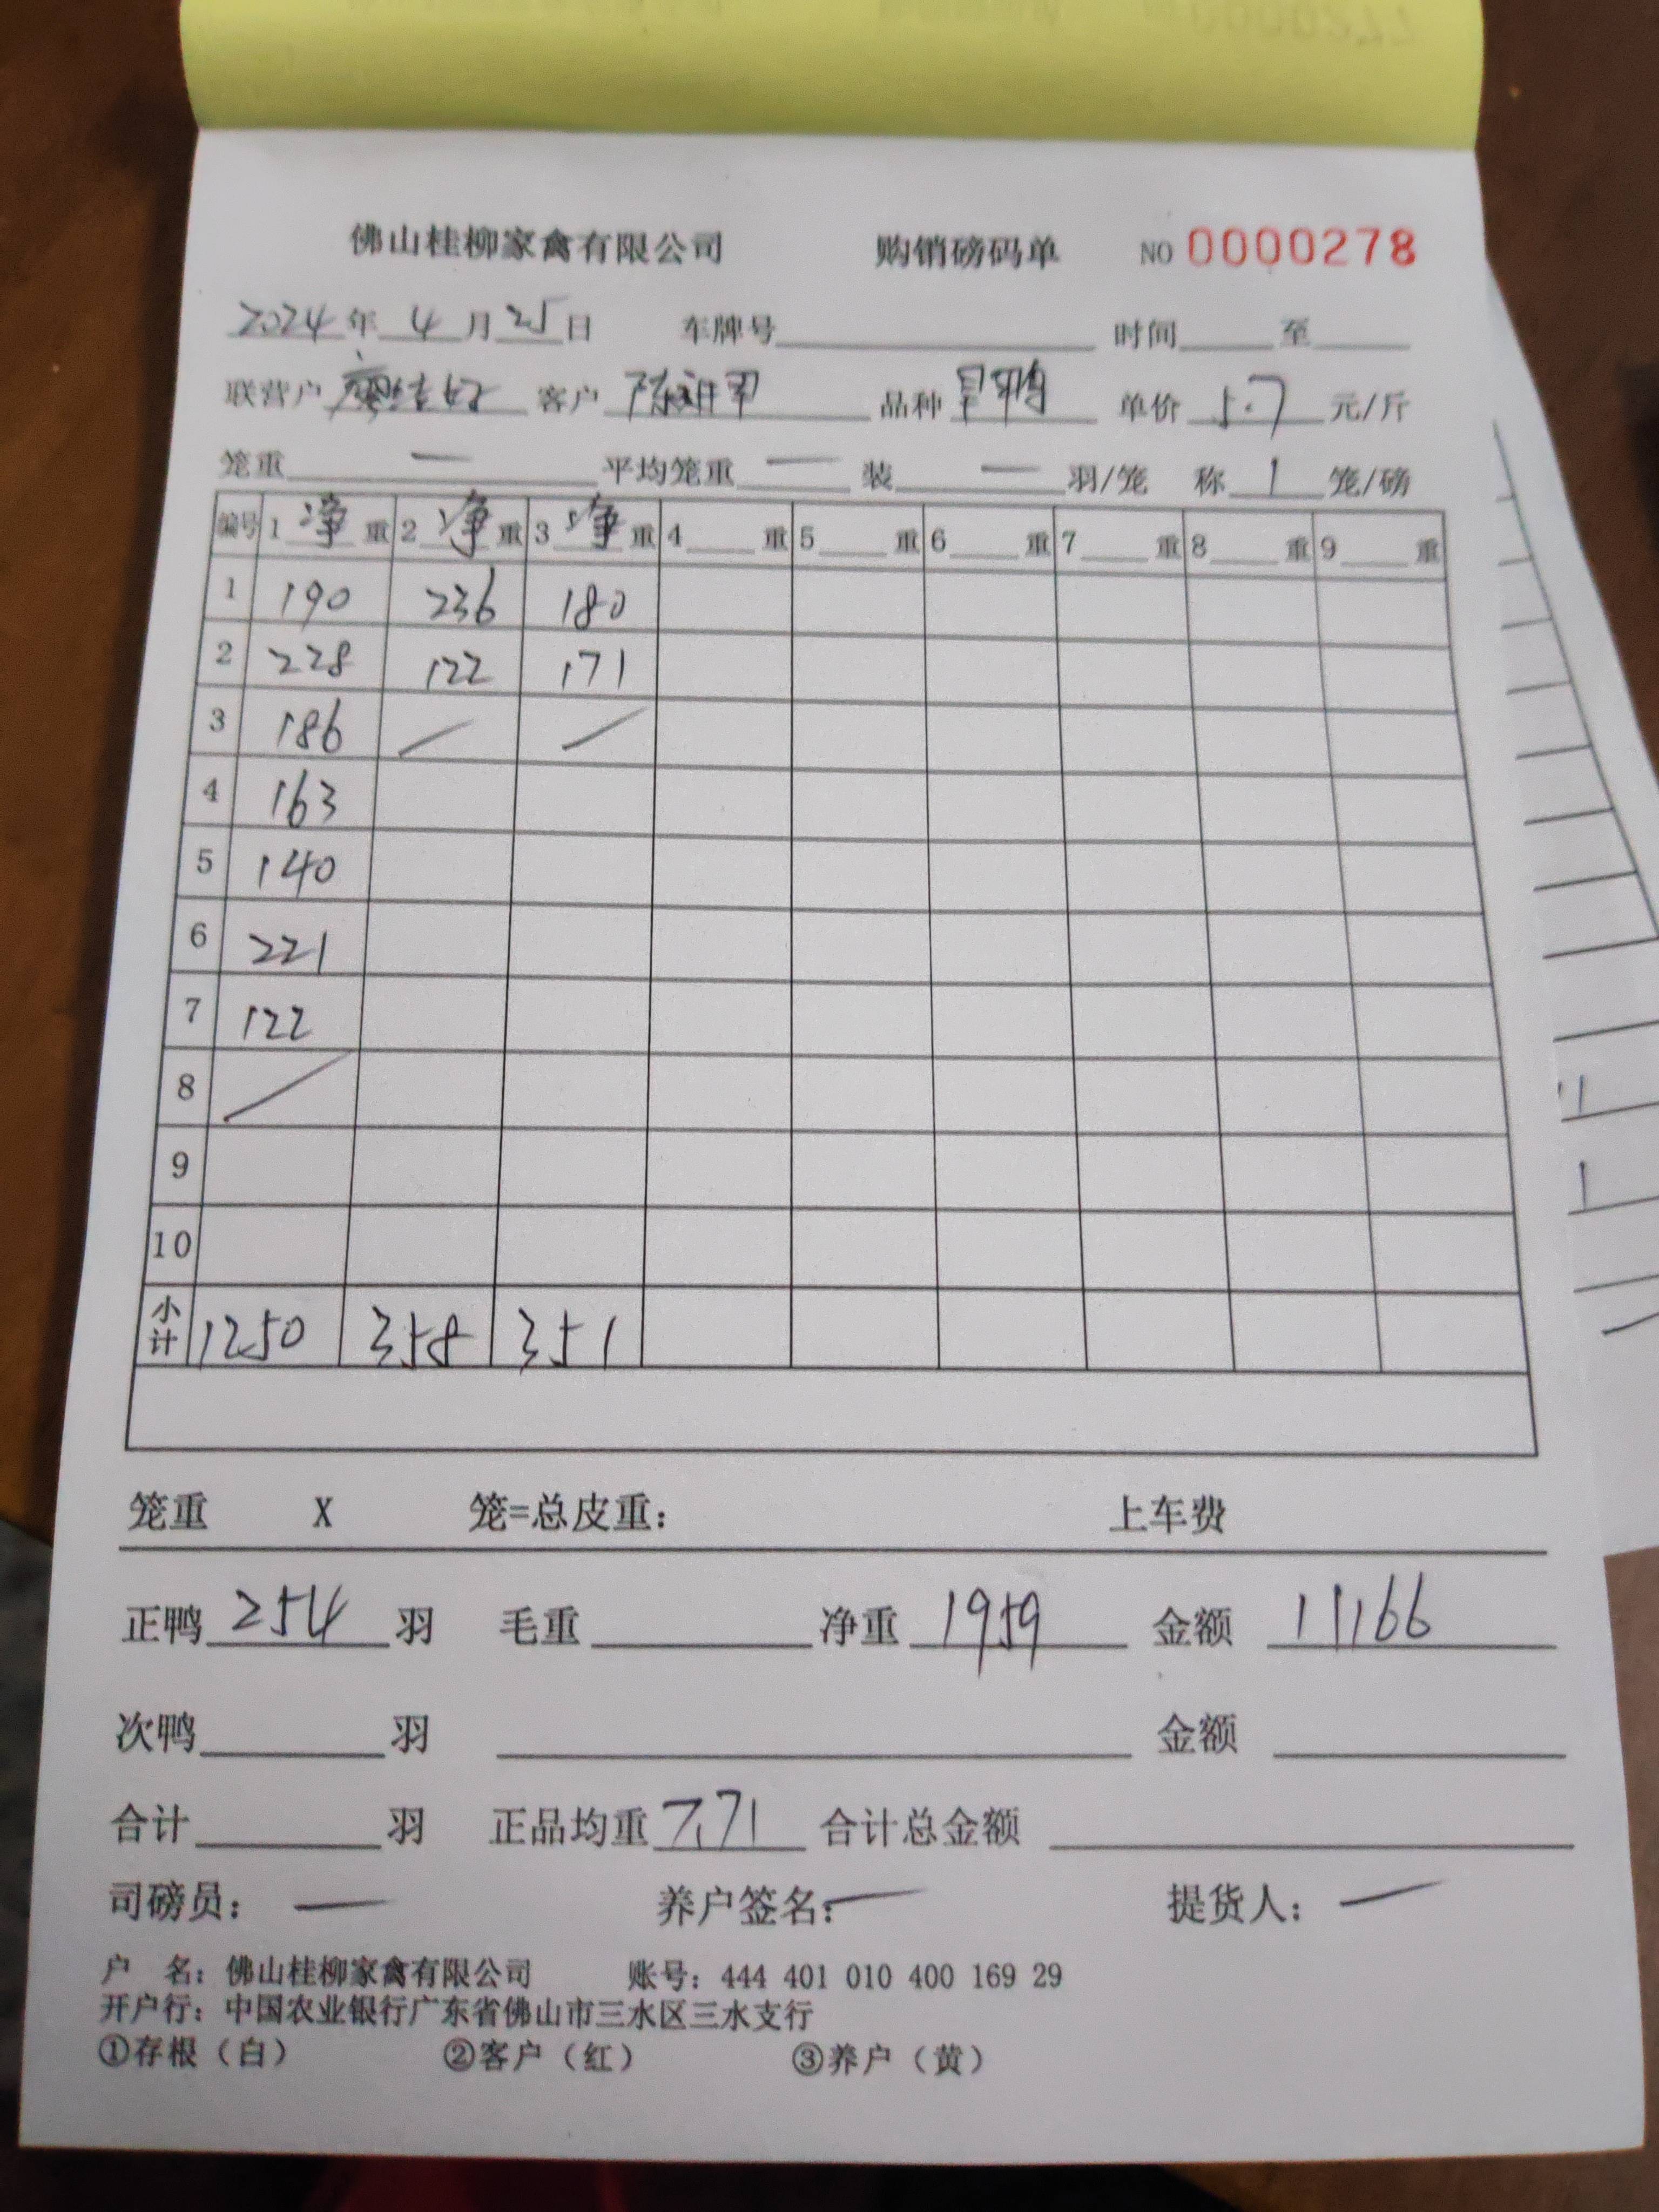 佛山桂柳家禽有限公司 购销磅码单 NO 0000278
2024年 4月 25日 车牌号 时间 至
联营户 客户 陈 品种 旱鸭 单价 5.7 元/斤
笼重 — 平均笼重 — 装 — 羽/笼 称 1 笼/磅
编号 1 净 重 2 净 重 3 净 重 4 重 5 重 6 重 7 重 8 重 9 重
1 190 236 180
2 228 122 171
3 186 / /
4 163
5 140
6 221
7 122
8 /
9
10
小计 1250 358 351
笼重 X 笼=总皮重： 上车费
正鸭 254 羽 毛重 净重 1959 金额 11166
次鸭 羽 金额
合计 羽 正品均重 7.71 合计总金额
司磅员： — 养户签名： — 提货人： —
户 名：佛山桂柳家禽有限公司 账号：444 401 010 400 169 29
开户行：中国农业银行广东省佛山市三水区三水支行
①存根（白） ②客户（红） ③养户（黄）